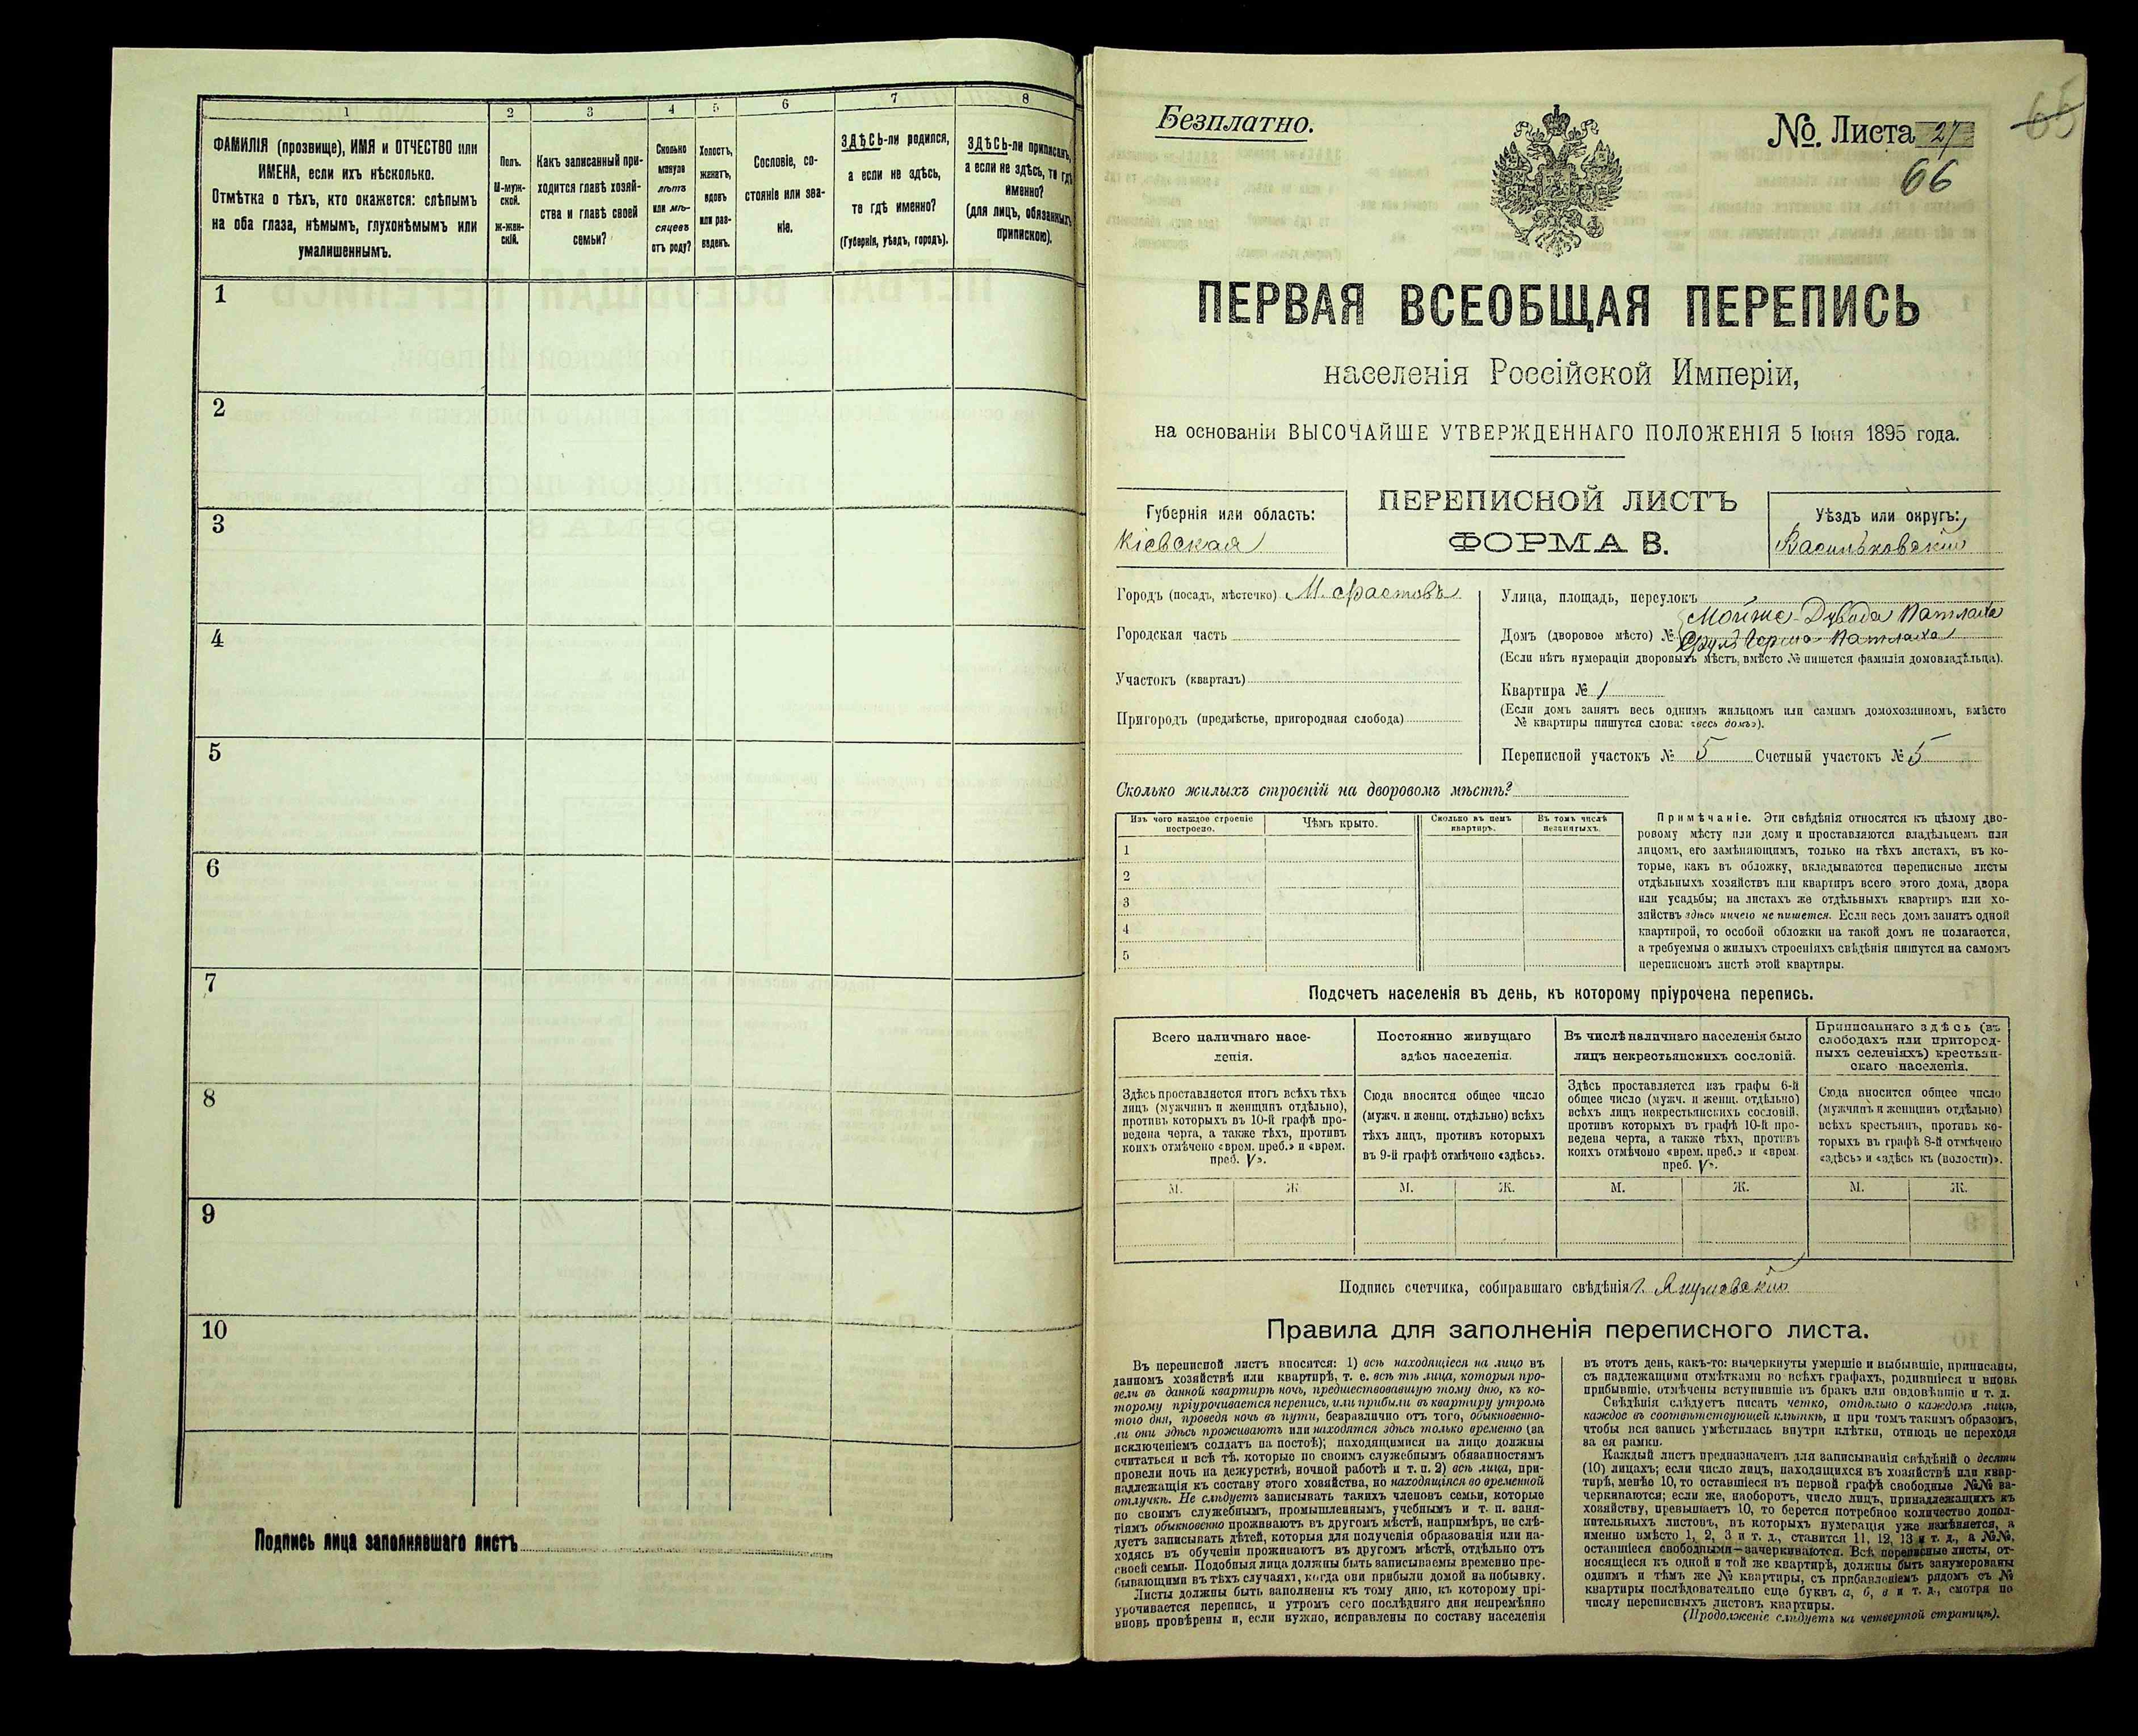 1 2 3 4 5 6 7 8
ФАМИЛІЯ (прозвище), ИМЯ и ОТЧЕСТВО или
ИМЕНА, если ихъ нѣсколько.
Отмѣтка о тѣхъ, кто окажется: слѣпымъ
на оба глаза, нѣмымъ, глухонѣмымъ или
умалишеннымъ.
Полъ.
М-муж-
ской.
Ж-жен-
скій.
Какъ записанный при-
ходится главѣ хозяй-
ства и главѣ своей
семьи?
Сколько
минуло
лѣтъ
или мѣ-
сяцевъ
отъ роду?
Холостъ,
женатъ,
вдовъ
или раз-
веденъ.
Сословіе, со-
стояніе или зва-
ніе.
ЗДѢСЬ-ли родился,
а если не здѣсь,
то гдѣ именно?
(Губернія, уѣздъ, городъ).
ЗДѢСЬ-ли приписанъ,
а если не здѣсь, то гдѣ
именно?
(для лицъ, обязанныхъ
припискою).
1
2
3
4
5
6
7
8
9
10
Подпись лица заполнявшаго листъ
65
Безплатно.
№. Листа 27
66
ПЕРВАЯ ВСЕОБЩАЯ ПЕРЕПИСЬ
населенія Россійской Имперіи,
на основаніи ВЫСОЧАЙШЕ УТВЕРЖДЕННАГО ПОЛОЖЕНІЯ 5 Іюня 1895 года.
Губернія или область:
Кіевская
ПЕРЕПИСНОЙ ЛИСТЪ
ФОРМА В.
Уѣздъ или округъ:
Васильковскій
Городъ (посадъ, мѣстечко) М. Фастовъ
Городская часть
Участокъ (кварталъ)
Пригородъ (предмѣстье, пригородная слобода)
Улица, площадь, переулокъ
Мойше-Дувида Патлаха
Домъ (дворовое мѣсто) № Патлаха
(Если нѣтъ нумераціи дворовыхъ мѣстъ, вмѣсто № пишется фамилія домовладѣльца).
Квартира № 1
(Если домъ занятъ весь однимъ жильцомъ или самимъ домохозяиномъ, вмѣсто
№ квартиры пишутся слова: «весь домъ»).
Переписной участокъ № 5 Счетный участокъ № 5
Сколько жилыхъ строеній на дворовомъ мѣстѣ?
Изъ чего каждое строеніе
построено.
Чѣмъ крыто.
Сколько въ немъ
квартиръ.
Въ томъ числѣ
незанятыхъ.
1
2
3
4
5
Примѣчаніе. Эти свѣдѣнія относятся къ цѣлому дво-
ровому мѣсту или дому и проставляются владѣльцемъ или
лицомъ, его замѣняющимъ, только на тѣхъ листахъ, въ ко-
торые, какъ въ обложку, вкладываются переписные листы
отдѣльныхъ хозяйствъ или квартиръ всего этого дома, двора
или усадьбы; на листахъ же отдѣльныхъ квартиръ или хо-
зяйствъ здѣсь ничего не пишется. Если весь домъ занятъ одной
квартирой, то особой обложки на такой домъ не полагается,
а требуемыя о жилыхъ строеніяхъ свѣдѣнія пишутся на самомъ
переписномъ листѣ этой квартиры.
Подсчетъ населенія въ день, къ которому пріурочена перепись.
Всего наличнаго насе-
ленія.
Постоянно живущаго
здѣсь населенія.
Въ числѣ наличнаго населенія было
лицъ некрестьянскихъ сословій.
Приписаннаго здѣсь (въ
слободахъ или пригород-
ныхъ селеніяхъ) крестьян-
скаго населенія.
Здѣсь проставляется итогъ всѣхъ тѣхъ
лицъ (мужчинъ и женщинъ отдѣльно),
противъ которыхъ въ 10-й графѣ про-
ведена черта, а также тѣхъ, противъ
коихъ отмѣчено «врем. преб.» и «врем.
преб. V».
Сюда вносится общее число
(мужч. и женщ. отдѣльно) всѣхъ
тѣхъ лицъ, противъ которыхъ
въ 9-й графѣ отмѣчено «здѣсь».
Здѣсь проставляется изъ графы 6-й
общее число (мужч. и женщ. отдѣльно)
всѣхъ лицъ некрестьянскихъ сословій,
противъ которыхъ въ графѣ 10-й про-
ведена черта, а также тѣхъ, противъ
коихъ отмѣчено «врем. преб.» и «врем.
преб. V».
Сюда вносится общее число
(мужчинъ и женщинъ отдѣльно)
всѣхъ крестьянъ, противъ ко-
торыхъ въ графѣ 8-й отмѣчено
«здѣсь» и «здѣсь къ (волости)».
М. Ж. М. Ж. М. Ж. М. Ж.
Подпись счетчика, собиравшаго свѣдѣнія
Правила для заполненія переписного листа.
Въ переписной листъ вносятся: 1) всѣ находящіеся на лицо въ
данномъ хозяйствѣ или квартирѣ, т. е. всѣ тѣ лица, которыя про-
вели въ данной квартирѣ ночь, предшествовавшую тому дню, къ ко-
торому пріурочивается перепись, или прибыли въ квартиру утромъ
того дня, проведя ночь въ пути, безразлично отъ того, обыкновенно-
ли они здѣсь проживаютъ или находятся здѣсь только временно (за
исключеніемъ солдатъ на постоѣ); находящимися на лицо должны
считаться и всѣ тѣ, которые по своимъ служебнымъ обязанностямъ
провели ночь на дежурствѣ, ночной работѣ и т. п. 2) всѣ лица, при-
надлежащія къ составу этого хозяйства, но находящіяся во временной
отлучкѣ. Не слѣдуетъ записывать такихъ членовъ семьи, которые
по своимъ служебнымъ, промышленнымъ, учебнымъ и т. п. заня-
тіямъ обыкновенно проживаютъ въ другомъ мѣстѣ, напримѣръ, не слѣ-
дуетъ записывать дѣтей, которыя для полученія образованія или на-
ходясь въ обученіи проживаютъ въ другомъ мѣстѣ, отдѣльно отъ
своей семьи. Подобныя лица должны быть записываемы временно пре-
бывающими въ тѣхъ случаяхъ, когда они прибыли домой на побывку.
Листы должны быть заполнены къ тому дню, къ которому прі-
урочивается перепись, и утромъ сего послѣдняго дня непремѣнно
вновь провѣрены и, если нужно, исправлены по составу населенія
въ этотъ день, какъ-то: вычеркнуты умершіе и выбывшіе, приписаны,
съ надлежащими отмѣтками во всѣхъ графахъ, родившіеся и вновь
прибывшіе, отмѣчены вступившіе въ бракъ или овдовѣвшіе и т. д.
Свѣдѣнія слѣдуетъ писать четко, отдѣльно о каждомъ лицѣ,
каждое въ соотвѣтствующей клѣткѣ, и при томъ такимъ образомъ,
чтобы вся запись умѣстилась внутри клѣтки, отнюдь не переходя
за ея рамки.
Каждый листъ предназначенъ для записыванія свѣдѣній о десяти
(10) лицахъ; если число лицъ, находящихся въ хозяйствѣ или квар-
тирѣ, менѣе 10, то оставшіеся въ первой графѣ свободные №№ за-
черкиваются; если же, наоборотъ, число лицъ, принадлежащихъ къ
хозяйству, превышаетъ 10, то берется потребное количество допол-
нительныхъ листовъ, въ которыхъ нумерація уже измѣняется, а
именно вмѣсто 1, 2, 3 и т. д., ставится 11, 12, 13 и т. д., а №№,
оставшіеся свободными—зачеркиваются. Всѣ переписные листы, от-
носящіеся къ одной и той же квартирѣ, должны быть занумерованы
однимъ и тѣмъ же № квартиры, съ прибавленіемъ рядомъ съ №
квартиры послѣдовательно еще буквъ а, б, в и т. д., смотря по
числу переписныхъ листовъ квартиры.
(Продолженіе слѣдуетъ на четвертой страницѣ).